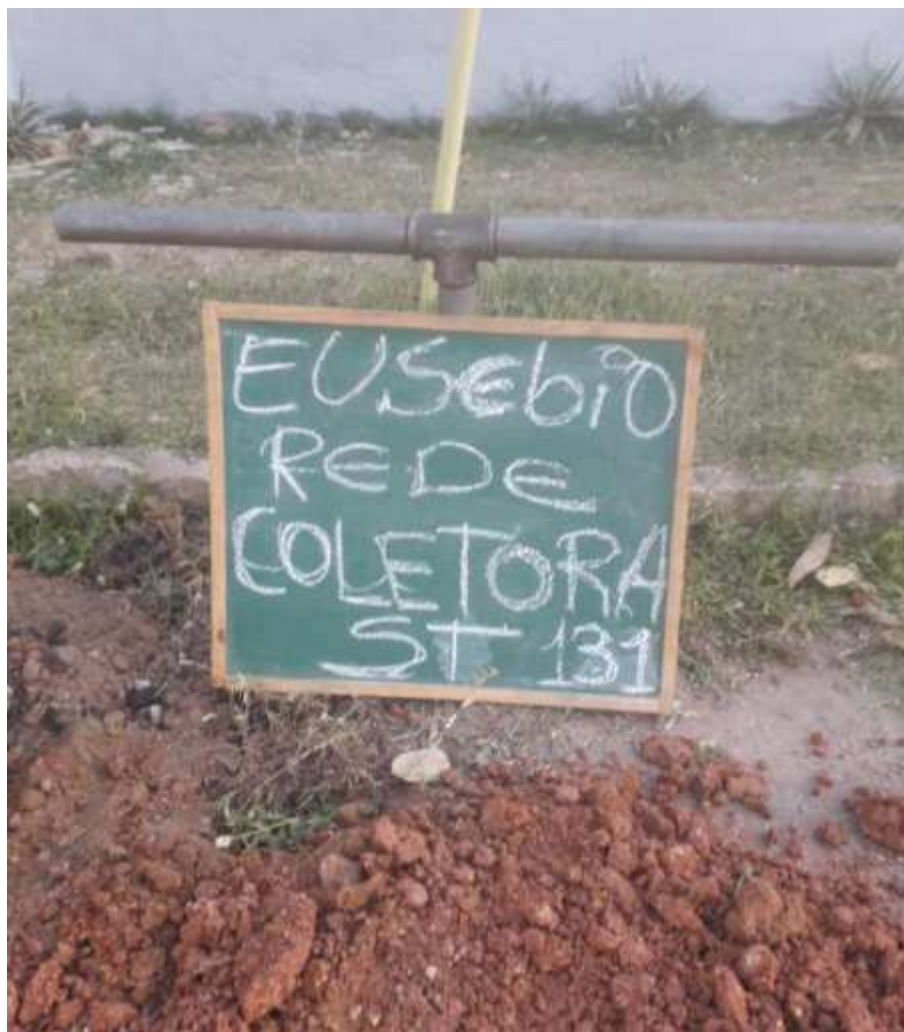 EUSEbiO
REDE
COLETORA
ST 131